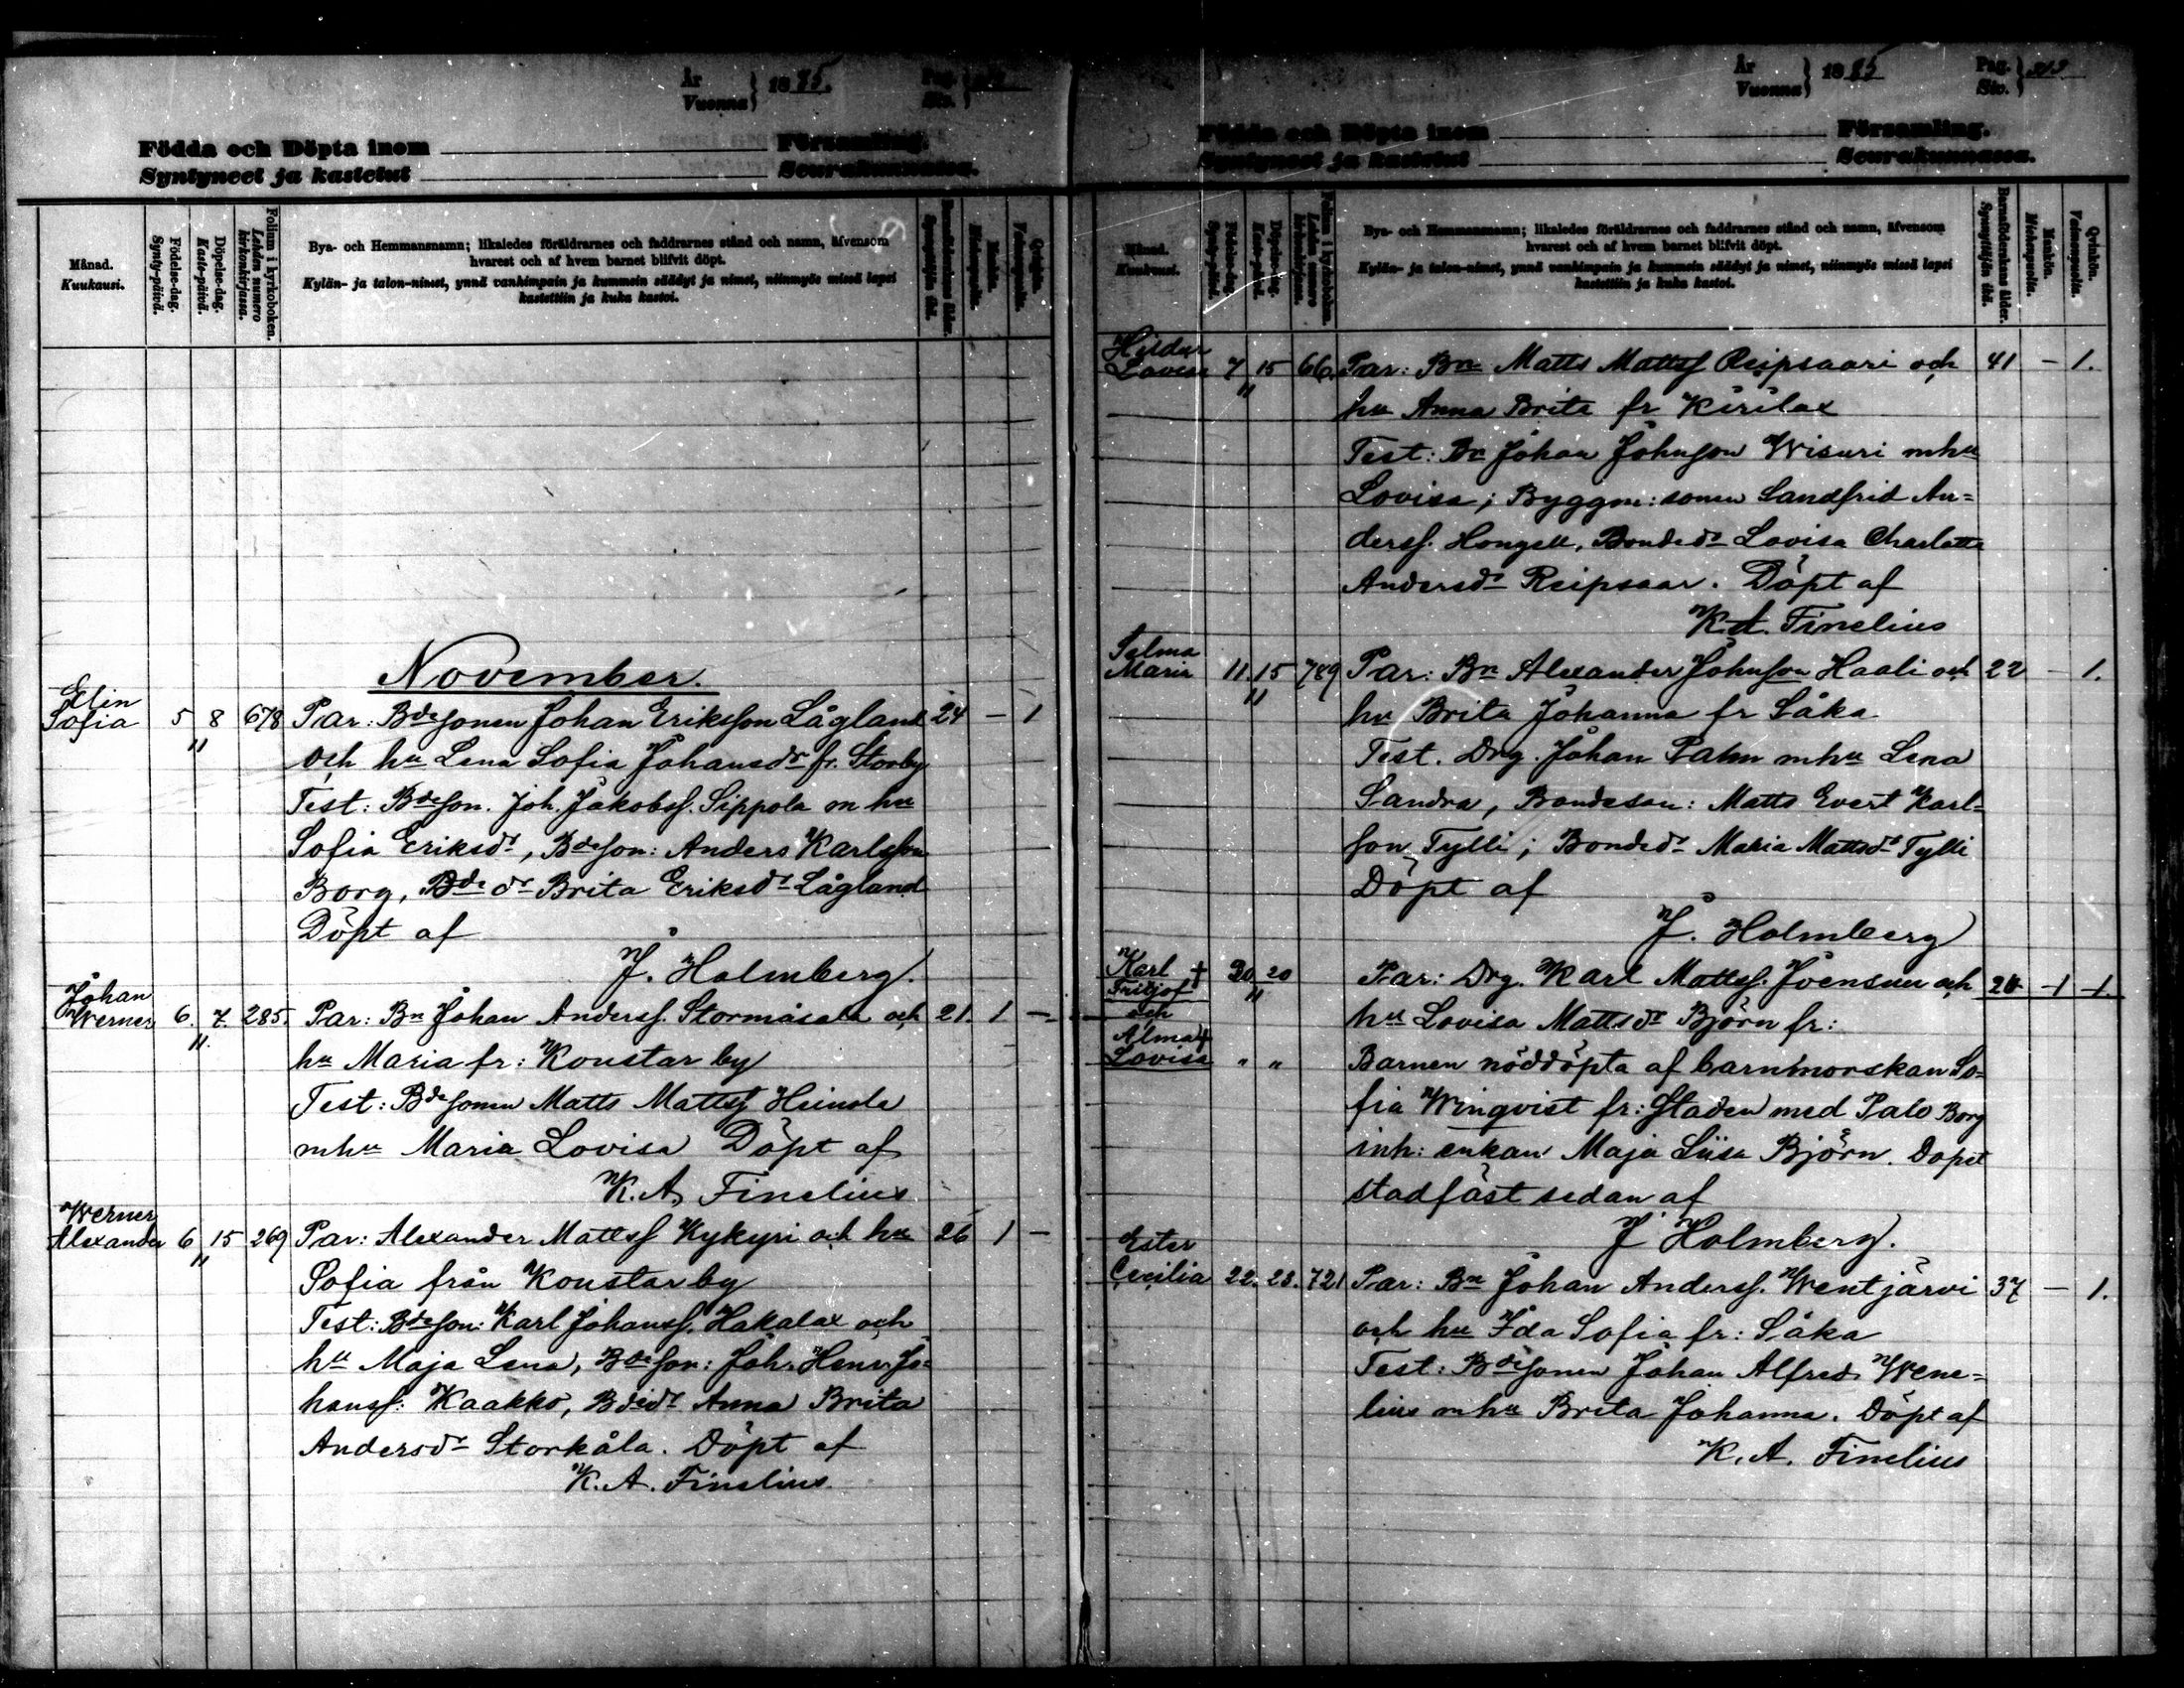 År
Vuonna } 1885.
Pag.
Siv.
Födda och Döpta inom Församling.
Syntyneet ja kastetut Seurakunnassa.
Månad.
Kuukausi.
Födelse-dag.
Synty-päivä.
Döpelse-dag.
Kaste-päivä.
Folium i kyrkoboken.
Lehden numero kirkonkirjassa.
Bya- och Hemmansnamn; likaledes föräldrarnes och faddrarnes stånd och namn, äfvensom
hvarest och af hvem barnet blifvit döpt.
Kylän- ja talon-nimet, ynnä vanhimpain ja kummein säädyt ja nimet, niinmyös missä lapsi
kastettiin ja kuka kastoi.
Barnaföderskans ålder.
Synnyttäjän ikä.
Mankön.
Miehenpuolia.
Qvinkön.
Vaimonpuolia.
November.
Elin
Sofia 5 8 678 Par: Bdesonen Johan Eriksson Lågland 24 – 1
"
och hu Lena Sofia Johansdr fr. Storby
Test: Bdeson. Joh. Jakobss. Sippola m hu
Sofia Eriksdr, Bdeson: Anders Karlsson
Borg, Bde dr Brita Eriksdr Lågland
Döpt af
J. Holmberg.
Johan
Werner 6. 7. 285. Par: Bn Johan Anderss. Stormåsala och 21. 1 –
"
hu Maria fr: Koustar by
Test: Bdesonen Matts Mattss Heinola
mhu Maria Lovisa Döpt af
K. A. Finelius
Werner
Alexander 6 15 269 Par: Alexander Mattss Kykyri och hu 26 1 –
"
Sofia från Koustar by
Test: Bdeson: Karl Johanss. Hakalax och
hu Maja Lena, Bdeson: Joh. Henr. Jo-
hanss: Kaakko, Bdedr Anna Brita
Andersdr Storkåla. Döpt af
K. A. Finelius.
År
Vuonna } 1885
Pag.
Siv.
Födda och Döpta inom Församling.
Syntyneet ja kastetut Seurakunnassa.
Månad.
Kuukausi.
Födelse-dag.
Synty-päivä.
Döpelse-dag.
Kaste-päivä.
Folium i kyrkoboken.
Lehden numero kirkonkirjassa.
Bya- och Hemmansnamn; likaledes föräldrarnes och faddrarnes stånd och namn, äfvensom
hvarest och af hvem barnet blifvit döpt.
Kylän- ja talon-nimet, ynnä vanhimpain ja kummein säädyt ja nimet, niinmyös missä lapsi
kastettiin ja kuka kastoi.
Barnaföderskans ålder.
Synnyttäjän ikä.
Mankön.
Miehenpuolia.
Qvinkön.
Vaimonpuolia.
Hildur
Lovisa 7 15 66. Par: Bn Matts Mattss Reipsaari och 41 – 1.
"
hu Anna Brita fr Kirilax
Test: Bn Johan Johnson Wisuri mhu
Lovisa; Byggm: sonen Sandfrid An-
derss. Hongell, Bondedr Lovisa Charlotta
Andersdr Reipsaar. Döpt af
K. A. Finelius
Selma
Maria 11. 15 789 Par: Bn Alexander Johnson Haali och 22 – 1.
"
hu Brita Johanna fr Såka
Test. Drg. Johan Palm mhu Lena
Sandra, Bondeson: Matts Evert Karl-
son Tylli; Bondedr Maria Mattsdr Tylli
Döpt af
J. Holmberg
Karl +
Fritjof 20 20 Par: Drg. Karl Mattss. Joensuu och 20 1 1.
"
och
Alma +
Lovisa " "
hu Lovisa Mattsdr Björn fr:
Barnen nöddöpta af barnmorskan So-
fia Winqvist fr: staden med Palo Borg
inh: enkan Maja Liisa Björn. Dopet
stadfäst sedan af
J Holmberg.
Ester
Cecilia 22. 23. 721 Par: Bn Johan Anderss. Wentjärvi 37 – 1.
och hu Ida Sofia fr: Såka
Test: Bdesonen Johan Alfred Wene-
lius mhu Brita Johanna. Döpt af
K. A. Finelius